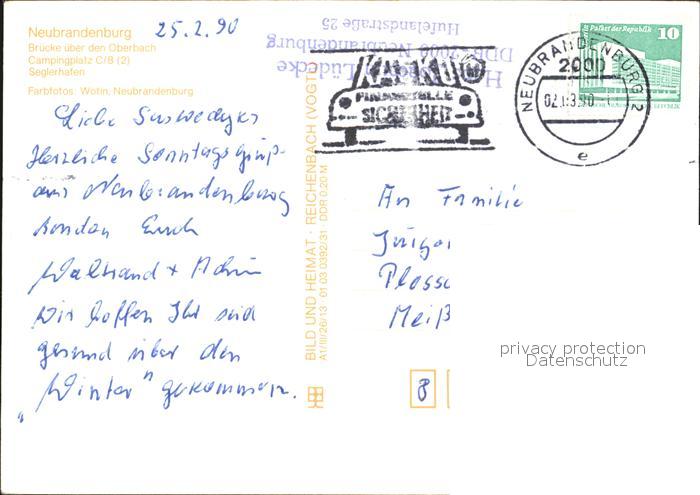 Neubrandenburg
Brücke über den Oberbach
Campingplatz C/8 (2)
Seglerhafen
Farbfotos: Wotin, Neubrandenburg
25.2.90
Liebe
Herzliche Sonntagsgrüße
aus Neubrandenburg
senden Euch
Waltraud + Achim
Wir hoffen Ihr seid
gesund über den
"Winter" gekommen.
BILD UND HEIMAT · REICHENBACH (VOGTL
A1/III/26/13 01 03 0392/31 DDR 0,20 M
Lüdecke
Hufelandstraße 25
DDR-2000 Neubrandenburg
FINANZIELLE
SICHERHEIT
NEUBRANDENBURG 2
2000
02.03.90
e
Palast der Republik 10
An Familie
Jürge
Meiß
8
privacy protection
Datenschutz